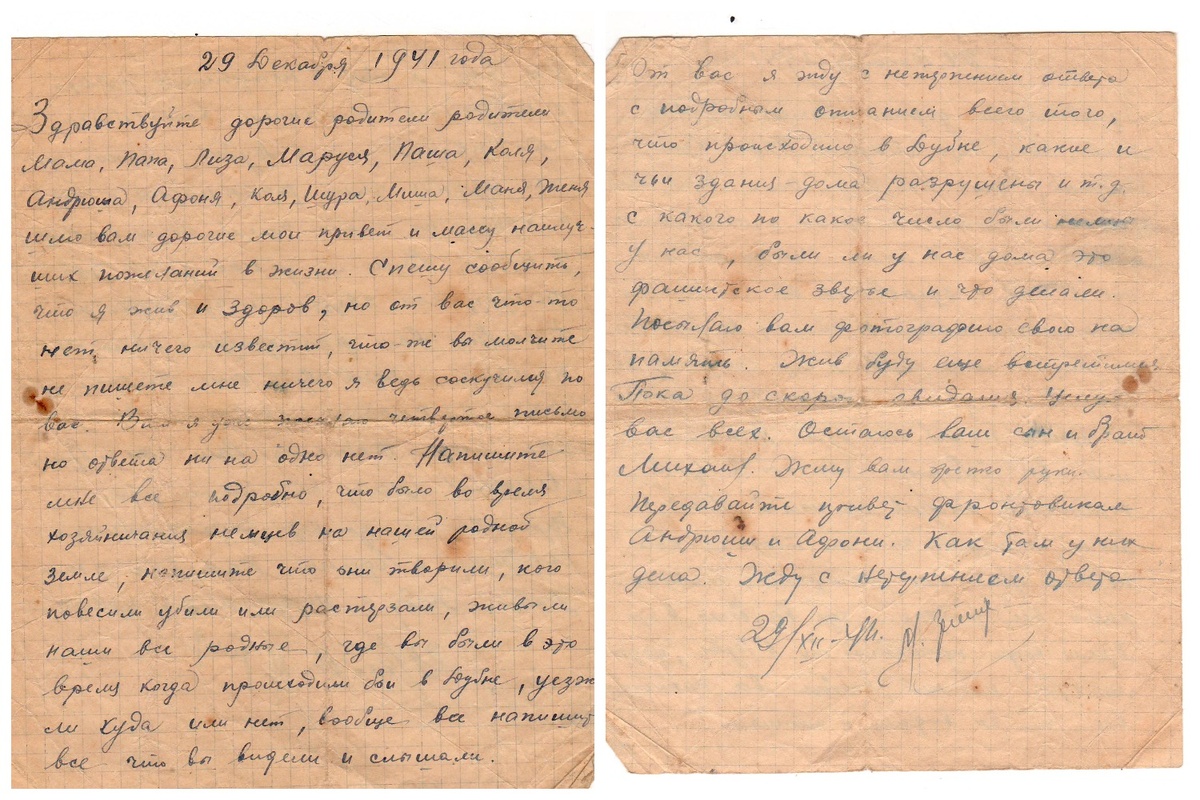 29 Декабря 1941 года
Здравствуйте дорогие родители родители
Мама, Папа, Лиза, Маруся, Паша, Коля,
Андрюша, Афоня, Коля, Шура, Миша, Маня, Женя
шлю вам дорогие мои привет и массу наилуч-
ших пожеланий в жизни. Спешу сообщить,
что я жив и здоров, но от вас что-то
нет ничего известий, что-же вы молчите
не пишете мне ничего я ведь соскучился по
вас. Вам я уже посылаю четвертое письмо
но ответа ни на одно нет. Напишите
мне все подробно, что было во время
хозяйничания немцев на нашей родной
земле, напишите что они творили, кого
повесили убили или растерзали, живы ли
наши все родные, где вы были в это
время когда происходили бои в Дубне, уезж
ли куда или нет, вообще все напишит
все что вы видели и слышали.
От вас я жду с нетерпением ответа
с подробным описанием всего того,
что происходило в Дубне, какие и
чьи здания-дома разрушены и т.д.
с какого по какое число были немцы
у нас, были ли у нас дома это
фашистское зверье и что делали.
Посылаю вам фотографию свою на
память. Жив буду еще встретимся
Пока до скорой свидания. Целую
вас всех. Остаюсь вам сын и брат
Михаил. Жму вам крепко руки.
Передавайте привет фронтовикам
Андрюши и Афони. Как там у них
дела. Жду с нетерпением ответа
29/XII-41.